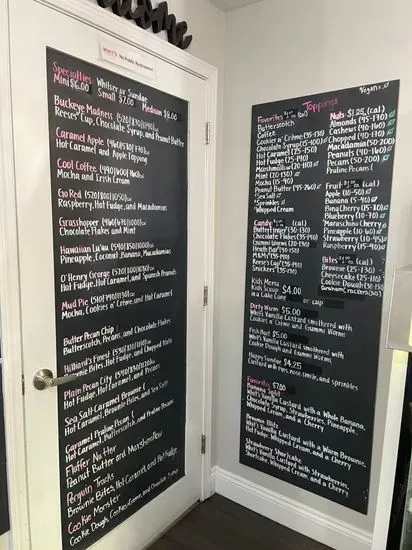 WHIT'S No Public Restrooms!
Specialties Whitser or Sundae
Mini $6.00 Small $7.00 Medium $8.00
Buckeye Madness
Reeses' Cup, Chocolate Syrup, and Peanut Butter
Caramel Apple
Hot Caramel and Apple Topping
Cool Coffee
Mocha and Irish Cream
Go Red
Raspberry, Hot Fudge, and Macadamias
Grasshopper
Chocolate Flakes and Mint
Hawaiian Lu'au
Pineapple, Coconut, Banana, Macadamias
O'Henry George
Hot Fudge, Hot Caramel, and Spanish Peanuts
Mud Pie
Mocha, Cookies n' Crème, and Hot Caramel
Butter Pecan Chip
Butterscotch, Pecans, and Chocolate Flakes
Hilliard's Finest
Brownie Bites, Hot Fudge, and Chopped Nuts
Plain Pecan City
Hot Fudge, Hot Caramel, and Pecans
Sea Salt Caramel Brownie
Hot Caramel, Brownie Bites, and Sea Salt
Caramel Praline Pecan
Hot Caramel, Butterscotch, and Praline Pecans
Fluffer Nutter
Peanut Butter and Marshmallow
Penguin Tracks
Brownie Bites, Hot Caramel, and Hot Fudge
Cookie Monster
Cookie Dough, Cookies n' Crème, and Chocolate Syrup
Vegan=
Toppings
Favorites
Butterscotch
Coffee
Cookies n' Crème (35-130)
Chocolate Syrup (15-100)
Hot Caramel (25-150)
Hot Fudge (25-140)
Marshmallow (20-110)
Mint (20-130)
Mocha (15-90)
Peanut Butter (45-260)
*Sea Salt
*Sprinkles
*Whipped Cream
Candy
Butterfinger (30-130)
Chocolate Flakes (35-190)
Gummi Worms (20-130)
Heath Bar (40-150)
M&M's (35-190)
Reese's Cup (35-190)
Snickers (35-130)
Nuts $1.25 (cal)
Almonds (45-170)
Cashews (40-140)
Chopped (40-170)
Macadamia (50-200)
Peanuts (40-160)
Pecans (50-200)
Praline Pecans
Fruit (cal)
Apple (10-50)
Banana (5-40)
Bing Cherry (15-80)
Blueberry (10-70)
Maraschino Cherry
Pineapple (10-60)
Strawberry (10-45)
Raspberry (15-90)
Bites (cal)
Brownie (25-130)
Cheesecake (25-110)
Cookie Dough (30-150)
Graham Crackers (30)
Kids Menu
Kids Scoop $4.00
in a Cake Cone or cup
Dirty Worm $5.00
Whit's Vanilla Custard smothered with
Cookies n' Crème and Gummi Worms
Fish Bait $5.00
Whit's Vanilla Custard smothered with
Cookie Dough and Gummi Worms
Happy Sundae $4.25
Custard with eyes, nose, smile, and sprinkles
Favorites $7.00
Banana Split
Whit's Vanilla Custard with a Whole Banana,
Chocolate Syrup, Strawberries, Pineapple,
Whipped Cream, and a Cherry
Brownie Blitz
Whit's Vanilla Custard with a Warm Brownie,
Hot Fudge, Whipped Cream, and a Cherry
Strawberry Shortcake
Whit's Vanilla Custard with Strawberries,
Shortcake, Whipped Cream, and a Cherry